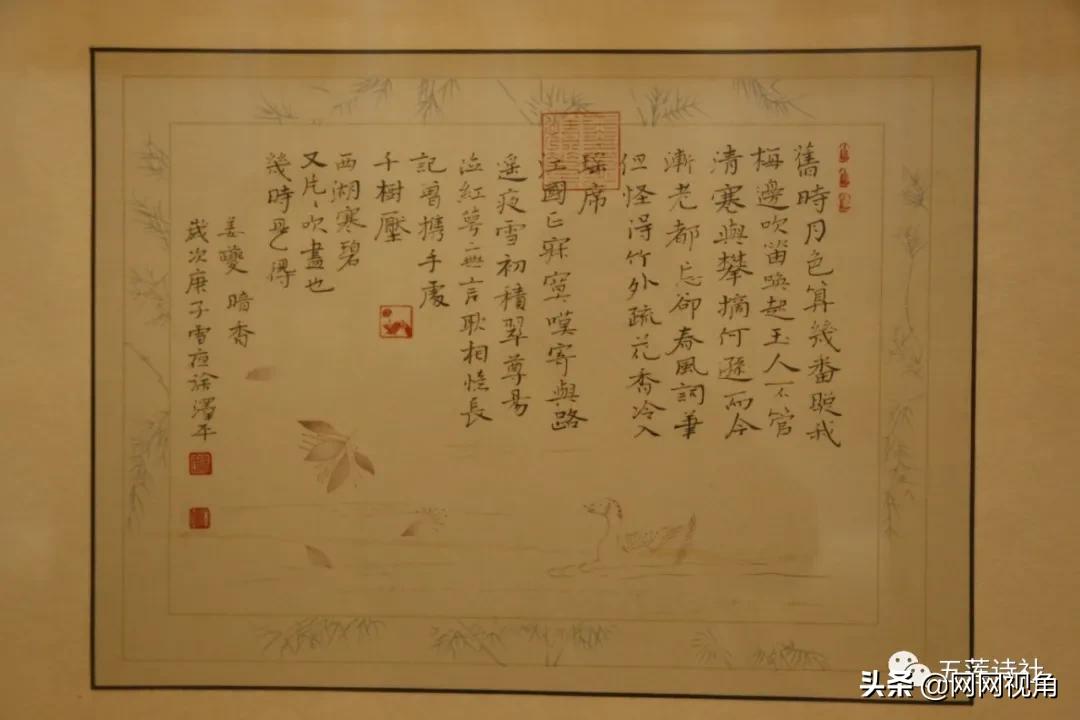 舊時月色算幾番照我
梅邊吹笛喚起玉人不管
清寒與攀摘何遜而今
漸老都忘卻春風詞筆
但怪得竹外疏花香冷入
瑤席
江國正寂寞嘆寄與路
遥夜雪初積翠尊易
泣紅萼無言耿相憶長
記曾攜手處
千樹壓
西湖寒碧
又片〻吹盡也
幾時見得
姜夔 暗香
歲次庚子雪夜
五莲诗社
头条 @网网视角